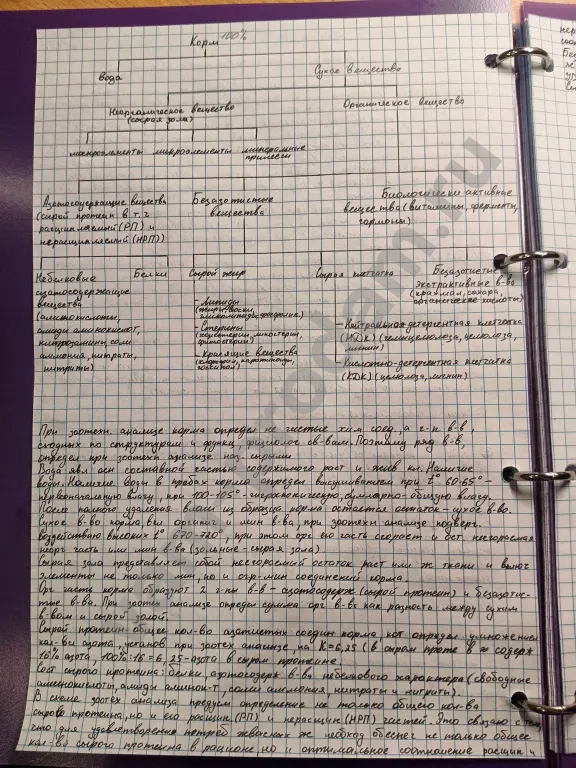 Корм 100%
вода
Сухое вещество
Неорганическое вещество
(сырая зола)
Органическое вещество
макроэлементы микроэлементы минеральные
примеси
Азотосодержащие вещества
(сырой протеин в т.ч
расщипляемый (РП) и
нерасщипляемый (НРП))
Безазотистые
вещества
Биологически активные
вещества (витамины, ферменты,
гормоны)
Небелковые
азотосодержащие
вещества
(аминокислоты,
амиды аминокислот,
нитрозамины, соли
аммония, нитраты,
нитриты)
Белки
Сырой жир
- Липиды
(жиры, воски,
гликолипиды, фосфолип)
- Стерины
- красящие вещества
(хлорофил, каротиноиды,
госсипол)
Сырая клетчатка
- Нейтрально-детергентная клетчатка
(НДК) (гемицеллюлоза, целюлоза,
лигнин)
- Кислотно-детергентная клетчатка
(КДК) (целюлоза, лигнин)
Безазотистые
экстрактивные в-ва
(крахмал, сахара,
органические кислоты)
При зоотехн. анализе корма определ не чистые хим соед, а г-п в-в,
сходных по структурам и функц, физиолог св-вам. Поэтому ряд в-в,
определ при зоотехн анализе наз сырыми
Вода явл осн составной частью содержимого раст и жив кл. Наличие
воды. Наличие воды в пробах корма определ высушиванием при t° 60-65° -
первоначальную влагу, при 100-105° - гигроскопическую, суммарно-общую влагу.
После полного удаления влаги из образца корма остается остаток - сухое в-во.
Сухое в-во корма, вкл органич и мин в-ва, при зоотехн анализе подверг.
воздействию высоких t° при этом орг его часть сгорает и ост несгораемая
неорг часть или мин в-ва (зольные - сырая зола)
Сырая зола представляет собой несгоревший остаток раст или ж ткани и включ
элементы не только мин, но и огр-мин соединений корма.
Орг часть корма образуют 2 г-пы в-в - азотосодерж (сырой протеин) и безазотис-
тые в-ва. При зоотех анализе определ сумма орг в-в как разность между сухим
в-вом и сырой золой.
Сырой протеин - общее кол-во азотистых соедин корма, кот определ умножением
кол-ва азота, установ при зоотех анализе, на К=6,25 (в сыром проте в ≈ содерж
16% азота, 100%:16=6,25 - азота в сыром протеине.
Сост сырого протеина: белки, азотосодерж в-ва небелкового характера (свободные
аминокислоты, амиды аминок-т, соли аммония, нитраты и нитриты).
В схеме зоотех анализа предусм определение не только общего кол-ва
сырого протеина, но и его расщип (РП) и нерасщип (НРП) частей. Это связано с тем,
что для удовлетворения потреб жвачных ж необход обеспеч не только общее
кол-во сырого протеина в рационе, но и оптимальное соотношение расщип и